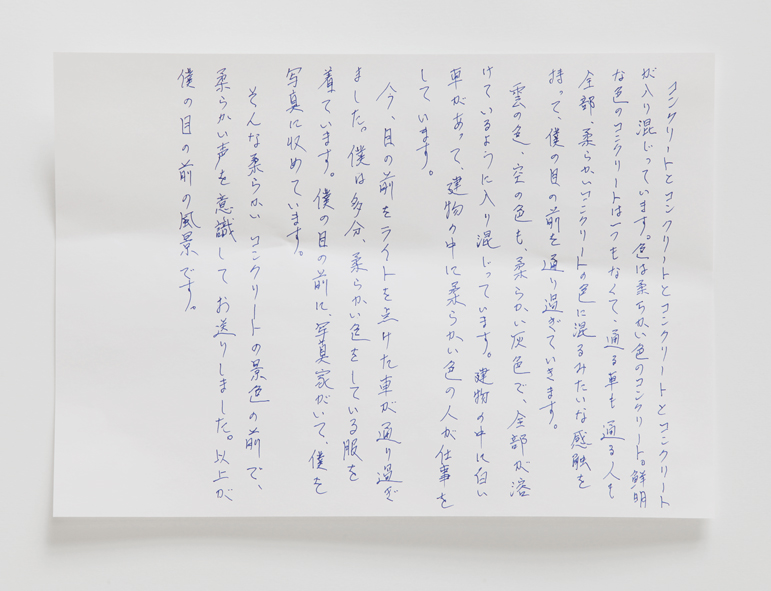 コンクリートとコンクリートとコンクリートとコンクリート
が入り混じっています。色は柔らかい色のコンクリート。鮮明
な色のコンクリートは一つもなくて、通る車も通る人も
全部、柔らかいコンクリートの色に混るみたいな感触を
持って、僕の目の前を通り過ぎていきます。
雲の色、空の色も、柔らかい灰色で、全部が溶
けているように入り混じっています。建物の中に白い
車があって、建物の中に柔らかい色の人が仕事を
しています。
今、目の前をライトを点けた車が通り過ぎ
ました。僕は多分、柔らかい色をしている服を
着ています。僕の目の前に、写真家がいて、僕を
写真に収めています。
そんな柔らかいコンクリートの景色の前で、
柔らかい声を意識してお送りしました。以上が
僕の目の前の風景です。